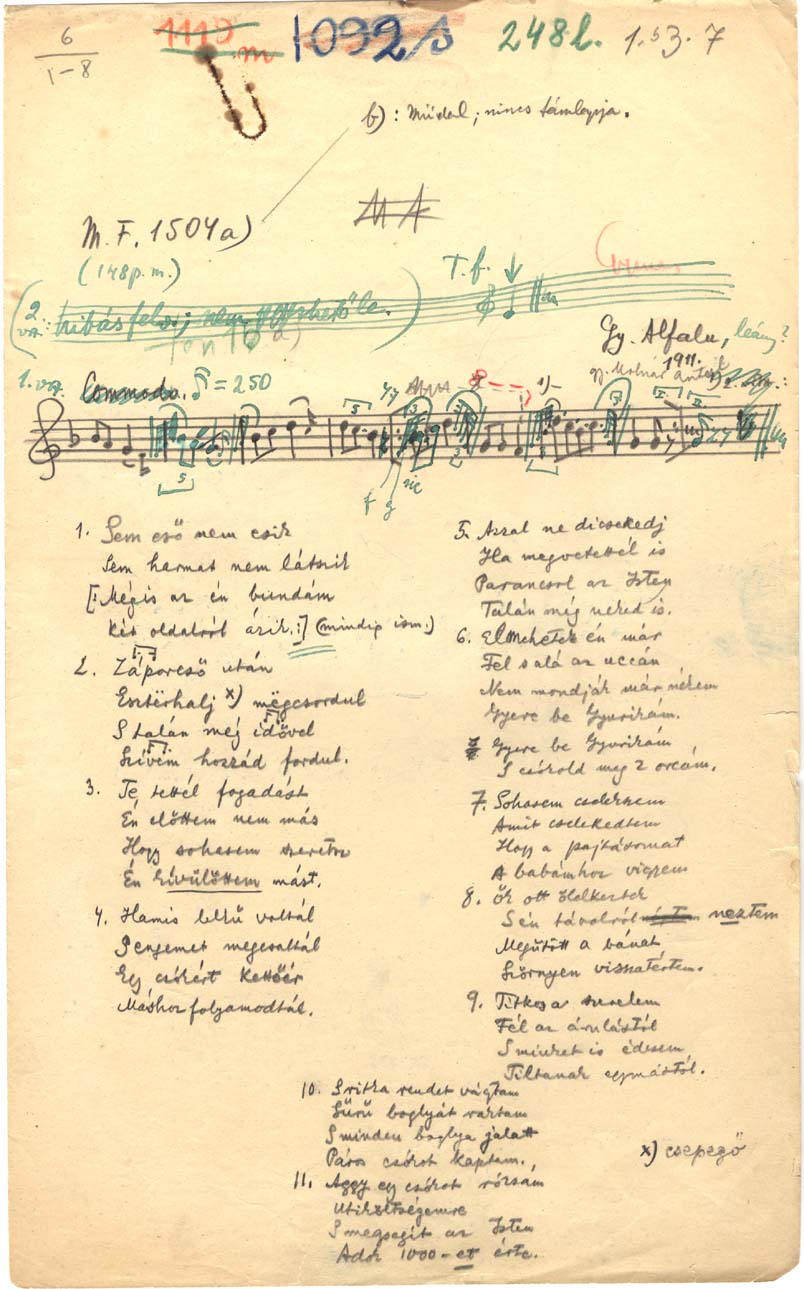 6
1-8
1119
m
1092/s
248l.
1.53.7
b): Műdal; nincs támlapja.
M. F. 1504 a)
(148 p. m.)
T. f.
2. va.: hibás felv.; nem jegyezhető le.
Gy. Alfalu, leány?
1911.
gy. Molnár Antal
1. va. Commodo. ♪ = 250
5
5
3
f g sic
1. Sem eső nem esik
Sem harmat nem látszik
[: Mégis az én bundám
Két oldalról ázik. :] (mindig ism.)
2. Záporeső után
Esztërhalj x) mëgcsordul
S talán még idővel
Szívem hozzád fordul.
3. Te tettél fogadást
Én előttem nem más
Hogy sohasem szeretsz
Én kívűlöttem mást.
4. Hamis lelkű voltál
S engemet megcsaltál
Egy csókért kettőér
Máshoz folyamodtál.
5. Azzal ne dicsekedj
Ha megvetettél is
Parancsol az Isten
Talán még neked is.
6. Elmehetek én már
Fel s alá az uccán
Nem mondják már nékem
Gyere be Gyurikám.
Gyere be Gyurikám
S csókold meg 2 orcám.
7. Sohasem cselekszem
Amit cselekedtem
Hogy a pajtásomat
A babámhoz vigyem
8. Ők ott
S én távolról néztem
Megütött a bánat
Szörnyen visszatértem.
9. Titkos a szerelem
Fél az árulástól
S minket is édesem
Tiltanak egymástól.
10. S ritka rendet vágtam
Sűrű boglyát raktam
S minden boglya jalatt
Páros csókot kaptam.
x) csepegő
11. Aggy egy csókot rózsám
Utiköltségemre
S megsegít az Isten
Adok 1000-et érte.